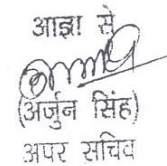 आज्ञा से
(अर्जुन सिंह)
अपर सचिव